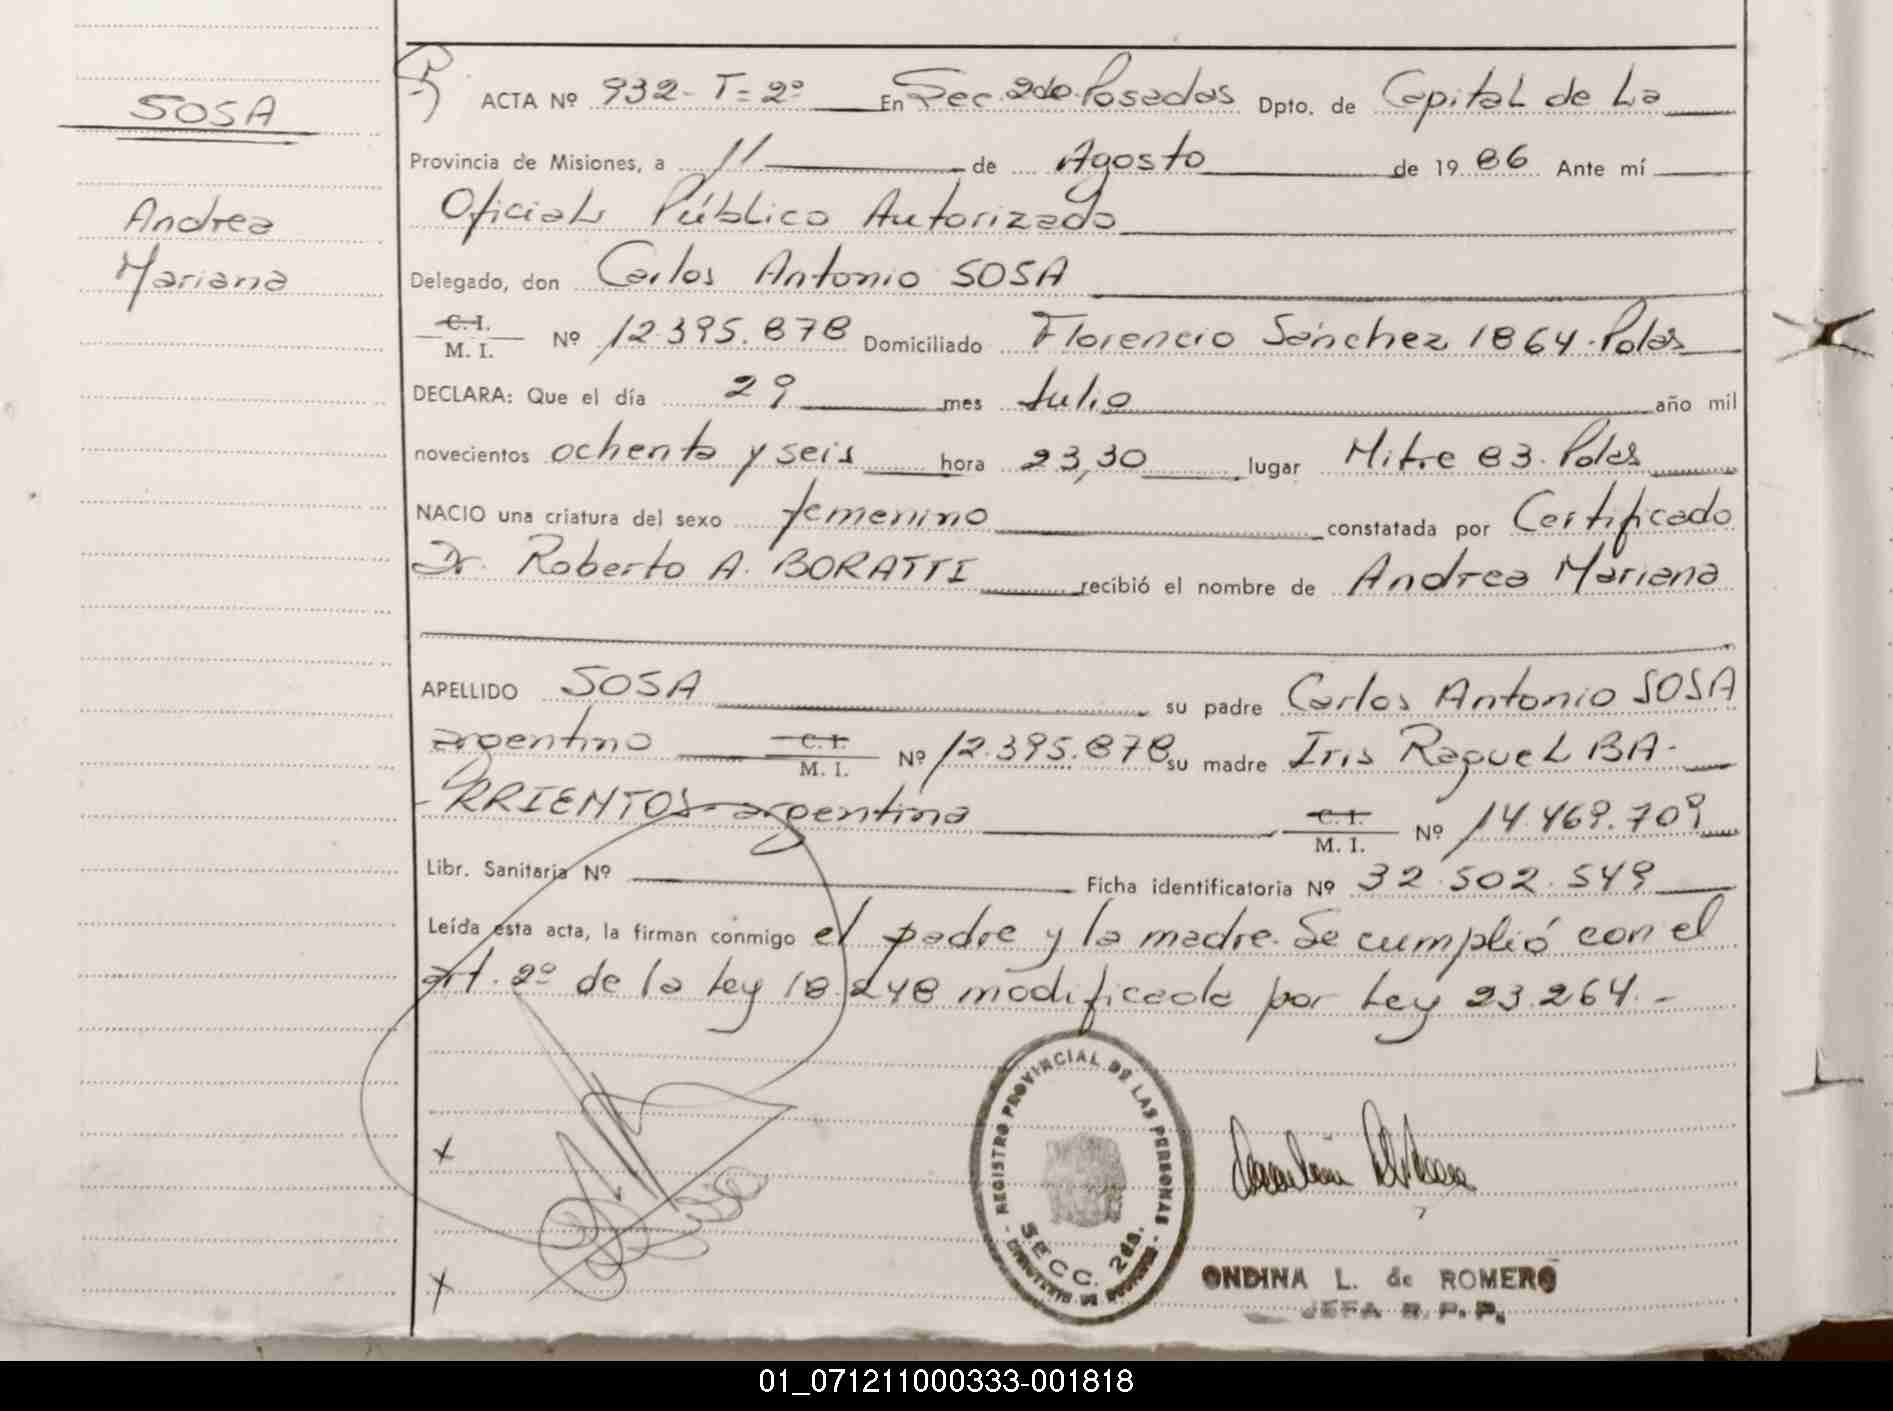 SOSA
Andrea
Mariana
ACTA Nº 932- T= 2º En Sec. 2da. Posadas Dpto. de Capital de La
Provincia de Misiones, a 11 de Agosto de 1986 Ante mí
Oficial Público Autorizado
Delegado, don Carlos Antonio SOSA
C. I.
M. I. Nº 12.395.878 Domiciliado Florencio Sánchez 1864. Pdas
DECLARA: Que el día 29 mes Julio año mil
novecientos ochenta y seis hora 23,30 lugar Mitre 83. Pdas
NACIO una criatura del sexo femenino constatada por Certificado
Dr. Roberto A. BORATTI recibió el nombre de Andrea Mariana
APELLIDO SOSA su padre Carlos Antonio SOSA
argentino C. I. M. I. Nº 12.395.878 su madre Iris Raquel BA-
RRIENTOS- argentina C. I. M. I. Nº 14.469.709
Libr. Sanitaria Nº Ficha identificatoria Nº 32.502.549
Leída esta acta, la firman conmigo el padre y la madre. Se cumplió con el
art. 2º de la Ley 18.248 modificada por Ley 23.264.-
x
x
REGISTRO PROVINCIAL DE LAS PERSONAS
SECC. 2da.
ONDINA L. de ROMERO
JEFA R. P. P.
01_071211000333-001818